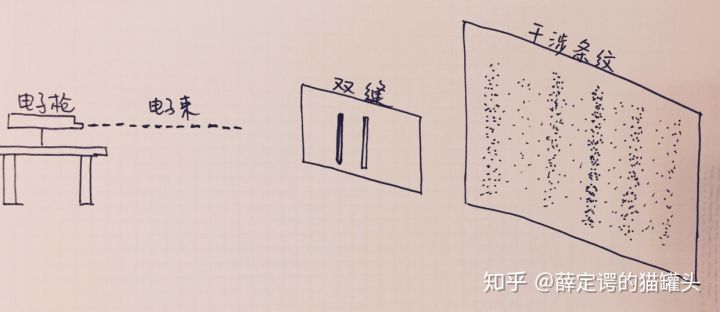 电子枪
电子束
双缝
干涉条纹
知乎 @薛定谔的猫罐头